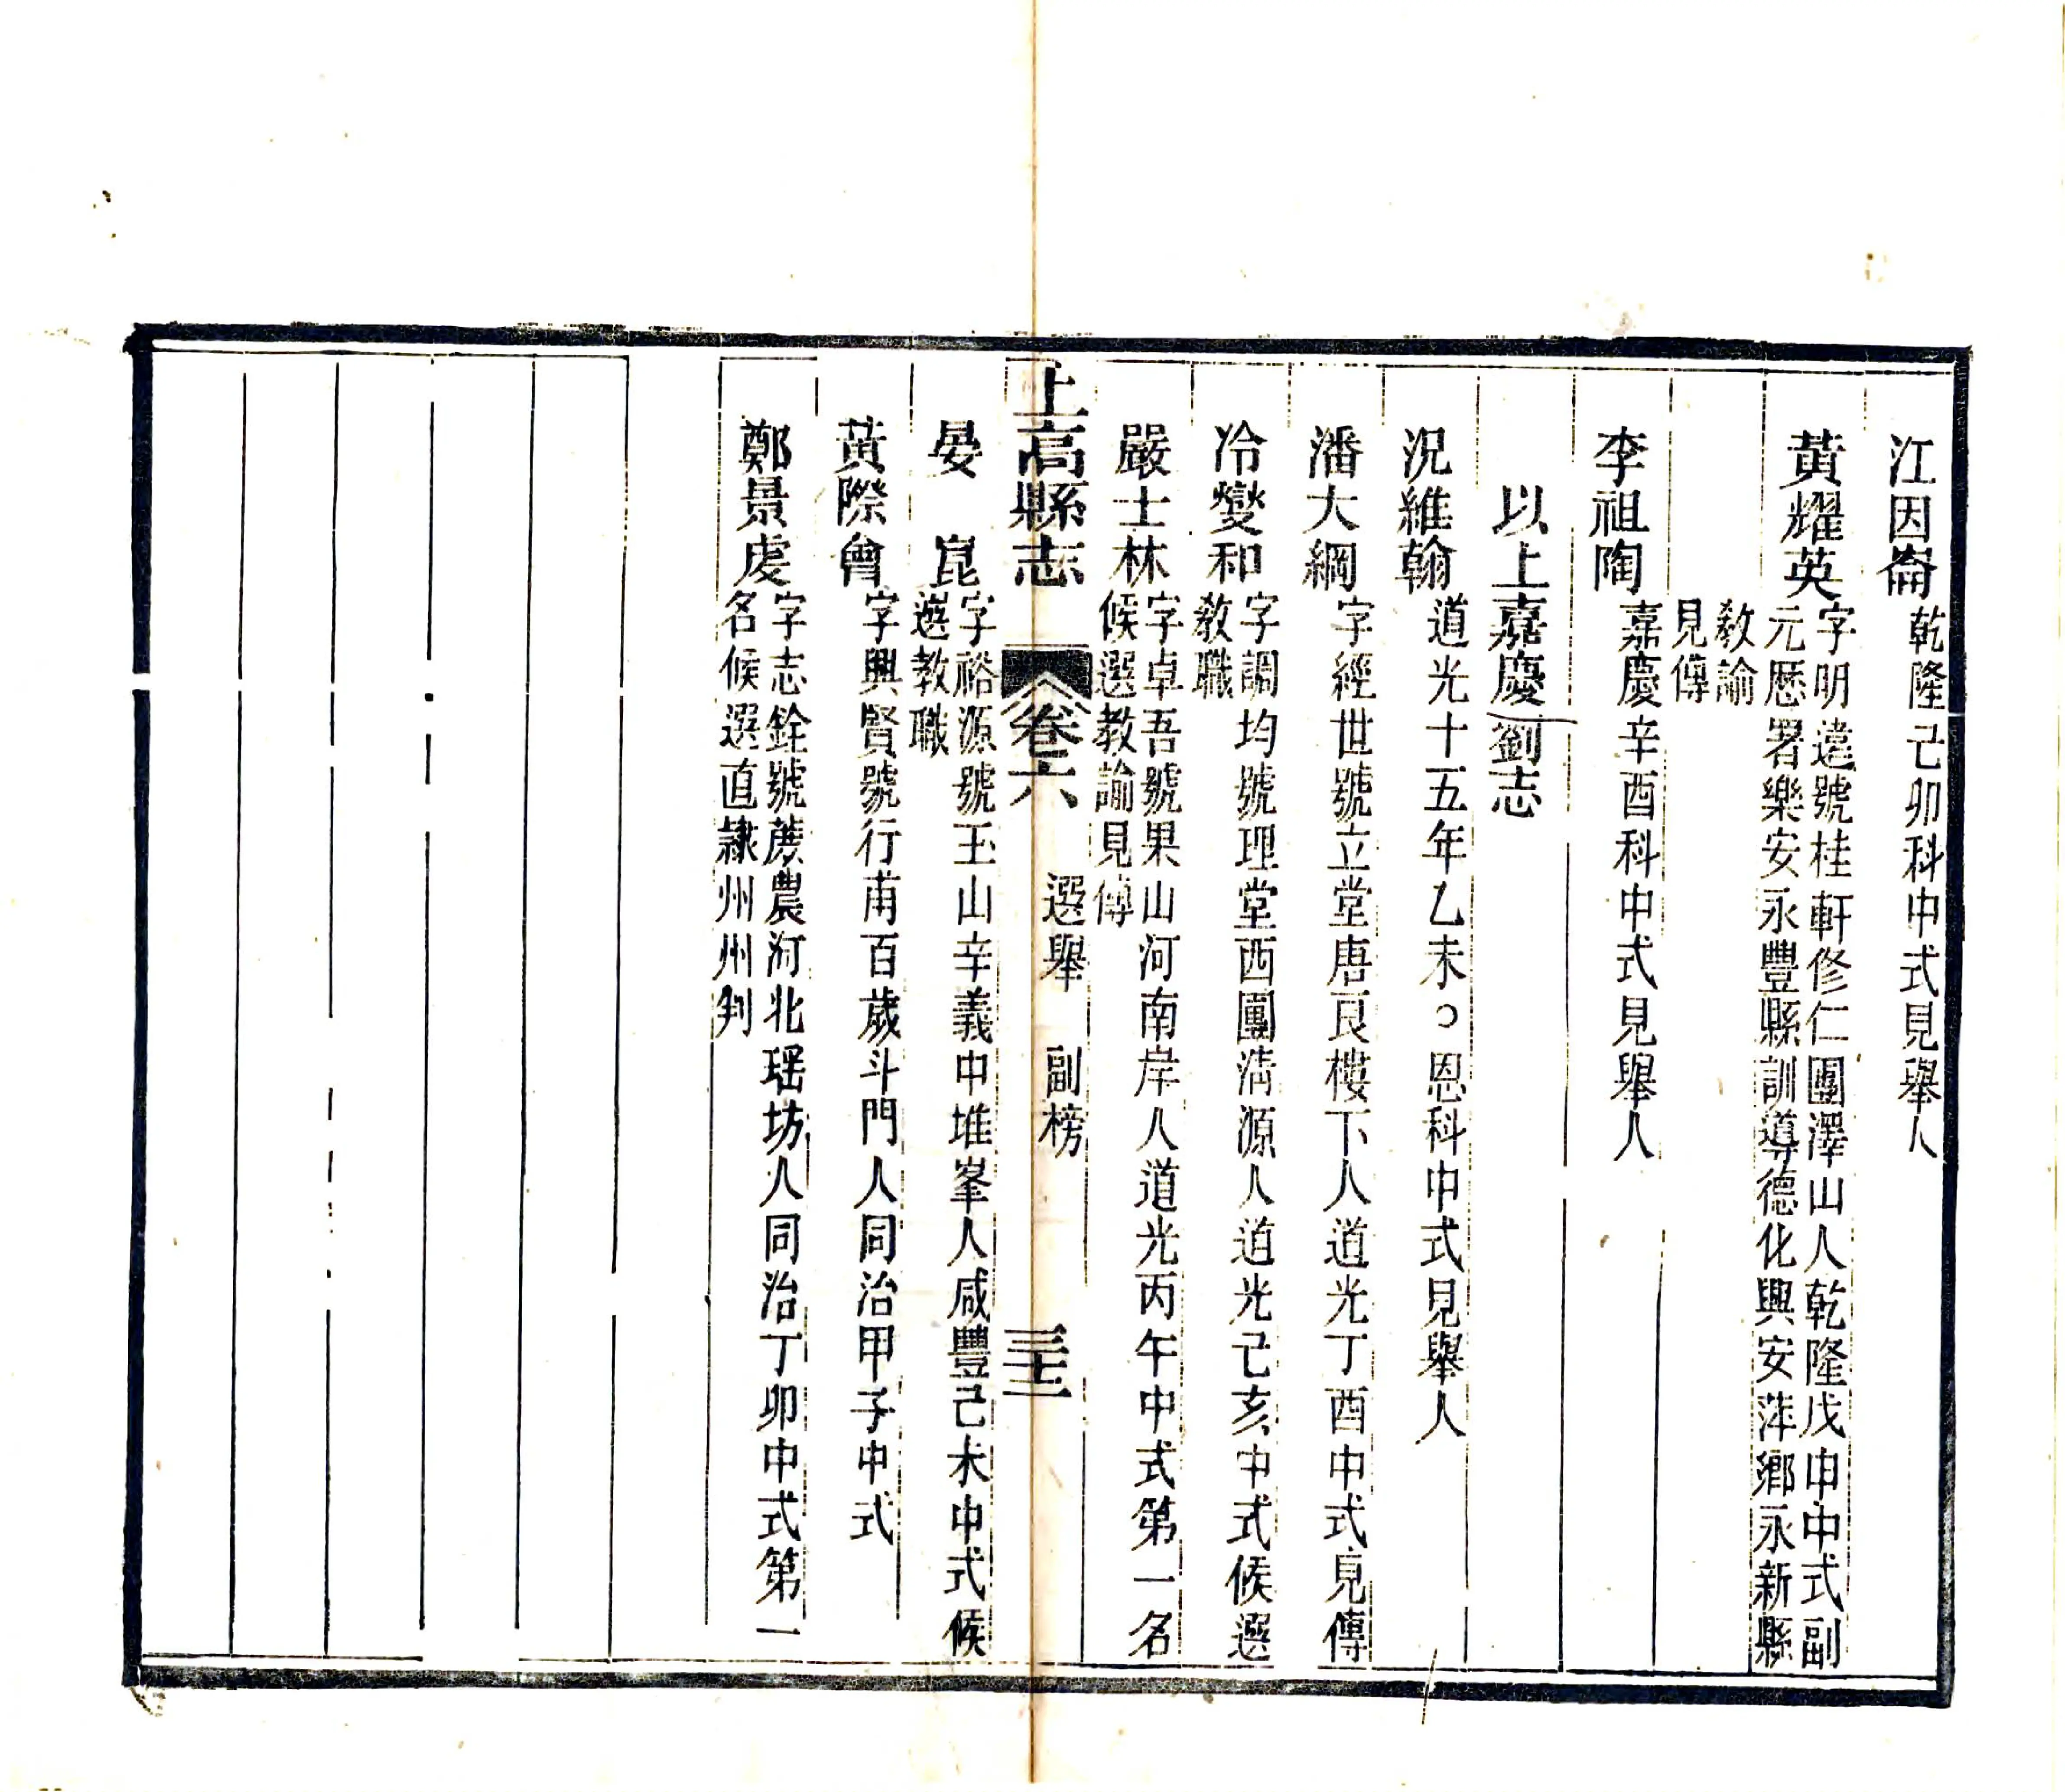 江因崙乾隆己卯科中式見舉人
黃耀英字明遠號桂軒修仁團澤山人乾隆戊申中式副
元歷署樂安永豐縣訓導德化興安萍鄉永新縣
教諭
見傳
李祖陶嘉慶辛酉科中式見舉人
以上嘉慶劉志
況維翰道光十五年乙未。恩科中式見舉人
潘大綱字經世號立堂唐良樓下人道光丁酉中式見傳
冷燮和字調均號理堂西團清源人道光己亥中式候選
教職
嚴士林字卓吾號果山河南岸人道光丙午中式第一名
候選教諭見傳
上高縣志 卷六 選舉 副榜
晏 崑字裕源號玉山辛義中堆峯人咸豐己未中式候
選教職
黃際會字興賢號行甫百歲斗門人同治甲子中式
鄭景虔字志銓號蔗農河北瑶坊人同治丁卯中式第一
名候選直隸州州判